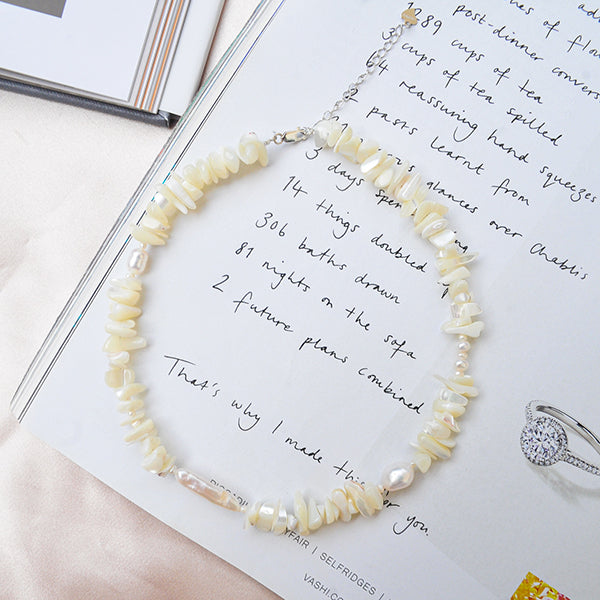 es of flow
post-dinner convers
1289 cups of tea
3 cups of tea spilled
64 reassuring hand squeezes
2 pasts learnt from
glances over Chablis
3 days spen
14 things doubled
306 baths drawn
81 nights on the sofa
2 future plans combined
That's why I made this for you.
YFAIR | SELFRIDGES |
VASHI.CO